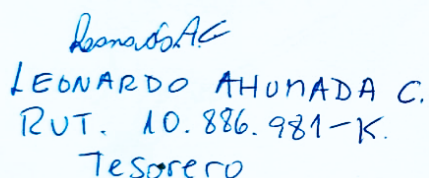 Leonardo A.C
LEONARDO AHUMADA C.
RUT. 10.886.981-K.
Tesorero